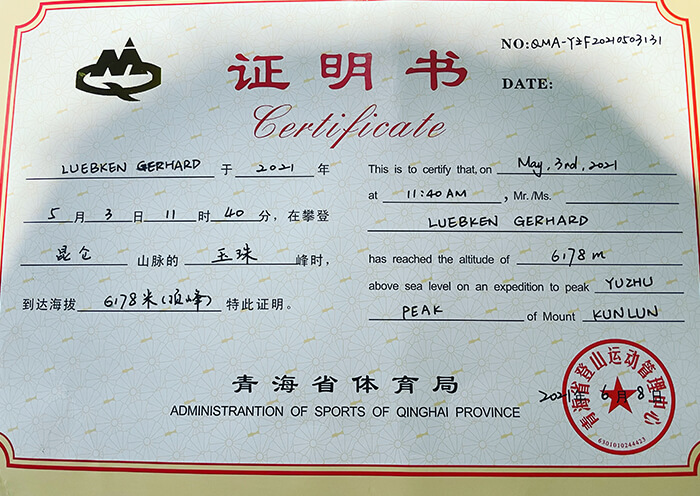 NO: QMA-YZF20210503131
证明书
DATE:
Certificate
LUEBKEN GERHARD 于 2021 年
5 月 3 日 11 时 40 分，在攀登
昆仑 山脉的 玉珠 峰时，
到达海拔 6178米(顶峰) 特此证明。
This is to certify that, on May, 3rd, 2021
at 11:40AM , Mr./Ms.
LUEBKEN GERHARD
has reached the altitude of 6178m
above sea level on an expedition to peak YUZHU
PEAK of Mount KUNLUN
青海省体育局
ADMINISTRANTION OF SPORTS OF QINGHAI PROVINCE
2021年6月8日
青海省登山运动管理中心
6301010244423